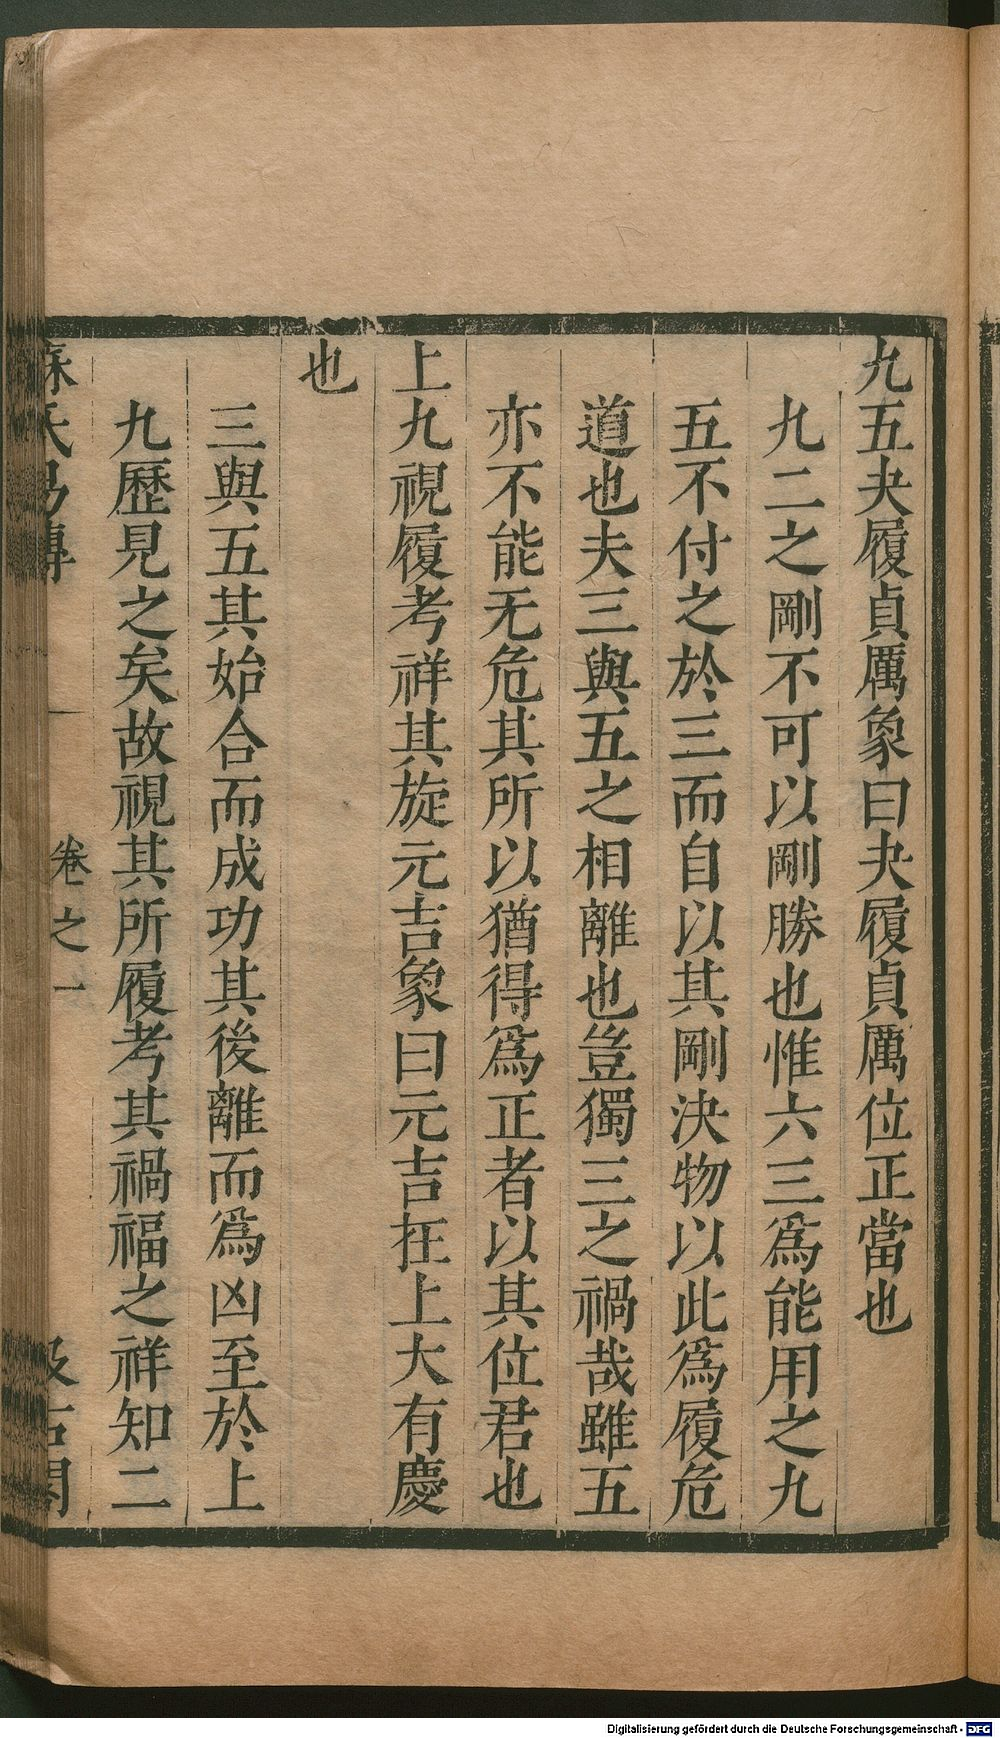 九五夬履貞厲象曰夬履貞厲位正當也
九二之剛不可以剛勝也惟六三爲能用之九
五不付之於三而自以其剛決物以此爲履危
道也夫三與五之相離也豈獨三之禍哉雖五
亦不能无危其所以猶得爲正者以其位君也
上九視履考祥其旋元吉象曰元吉在上大有慶
也
三與五其始合而成功其後離而爲凶至於上
九歷見之矣故視其所履考其禍福之祥知二
蘇氏易傳 卷之一 汲古閣
Digitalisierung gefördert durch die Deutsche Forschungsgemeinschaft - DFG